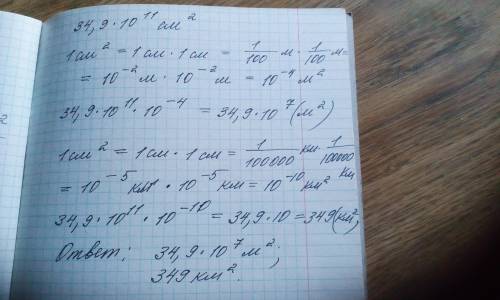 34,9·10¹¹ см²
1 см² = 1 см · 1 см = 1/100 м · 1/100 м =
= 10⁻² м · 10⁻² м = 10⁻⁴ м²
34,9·10¹¹ · 10⁻⁴ = 34,9·10⁷ (м²)
1 см² = 1 см · 1 см = 1/100000 км · 1/100000 км
= 10⁻⁵ км · 10⁻⁵ км = 10⁻¹⁰ км²
34,9·10¹¹ · 10⁻¹⁰ = 34,9·10 = 349 (км²)
Ответ: 34,9·10⁷ м²;
349 км².